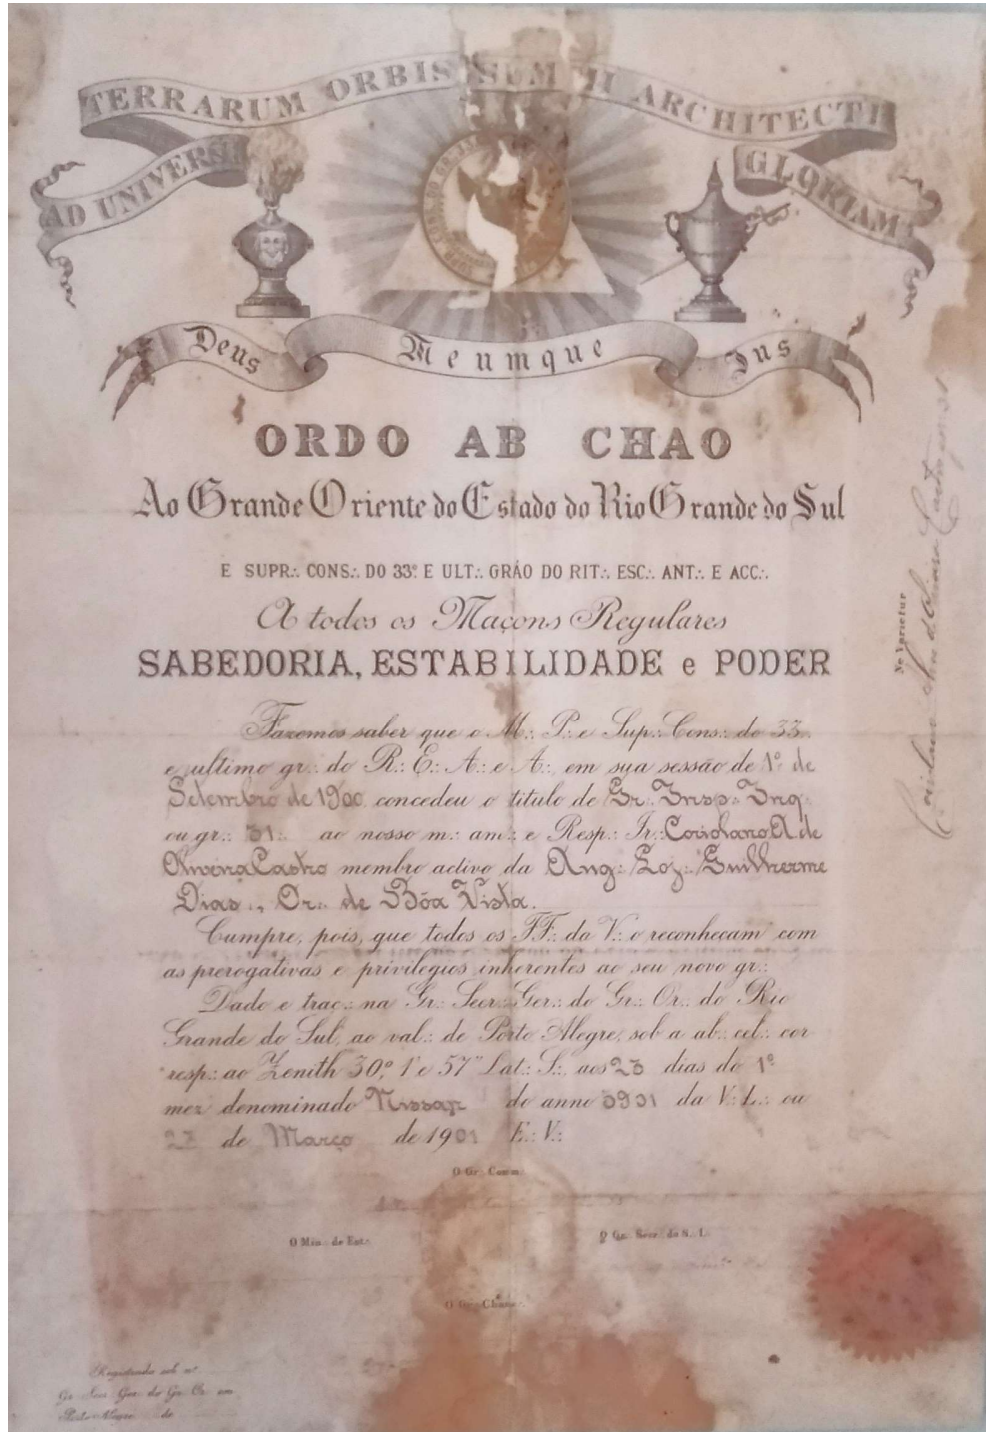 TERRARUM ORBIS SUM II ARCHITECTI
AD UNIVERSI
GLORIAM
Deus Meumque Jus
ORDO AB CHAO
Ao Grande Oriente do Estado do Rio Grande do Sul
E SUPR∴ CONS∴ DO 33º E ULT∴ GRÁO DO RIT∴ ESC∴ ANT∴ E ACC∴
A todos os Maçons Regulares
SABEDORIA, ESTABILIDADE e PODER
Fazemos saber que o M∴ P∴ e Sup∴ Cons∴ do 33
e ultimo gr∴ do R∴ E∴ A∴ e A∴, em sua sessão de 1º de
Setembro de 1900 concedeu o titulo de Gr∴ Insp∴ Inq∴
ou gr∴ 31∴ ao nosso m∴ am∴ e Resp∴ Ir∴ Coriolano A de
Oliveira Castro membro activo da Aug∴ Loj∴ Guilherme
Dias∴, Or∴ de Bôa Vista.
Cumpre, pois, que todos os FF∴ da V∴ o reconheçam com
as prerogativas e privilegios inherentes ao seu novo gr∴
Dado e traç∴ na Gr∴ Secr∴ Ger∴ do Gr∴ Or∴ do Rio
Grande do Sul, ao val∴ de Porto Alegre, sob a ab∴ cel∴ cor
resp∴ ao Zenith 30,º 1' e 57" Lat∴ S∴, aos 23 dias do 1º
mez denominado Nissan do anno 5901 da V∴ L∴ ou
de Março de 1901 E∴ V∴
O Gr∴ Comm∴
O Min∴ de Est∴
O Gr∴ Secr∴ do S∴ I∴
O Gr∴ Chanc∴
Registrado sob nº
Gr∴ Secr∴ Ger∴ do Gr∴ Or∴ em
Porto Alegre de
Ne Varietur